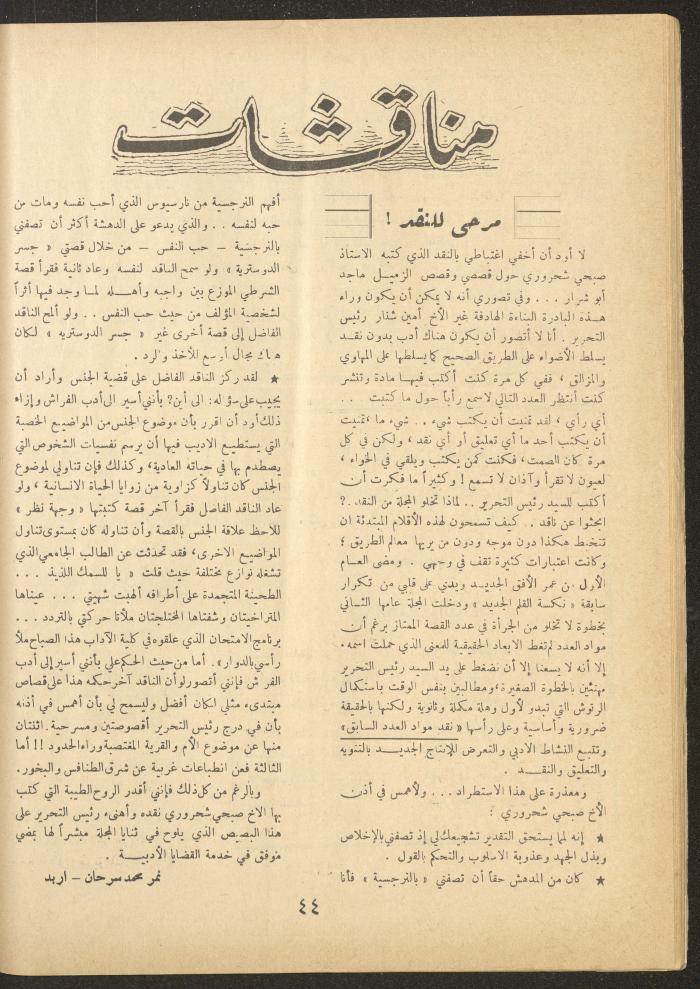 مناقشات
مرحى للنقد !
لا أود أن أخفي اغتباطي بالنقد الذي كتبه الاستاذ
صبحي شحروري حول قصصي وقصص الزميل ماجد
أبو شرار . . . وفي تصوري أنه لا يمكن أن يكون وراء
هذه البادرة البناءة الهادفة غير الأخ أمين شنار رئيس
التحرير . أنا لا أتصور أن يكون هناك أدب بدون نقد
يسلط الأضواء على الطريق الصحيح كما يسلطها على المهاوي
والمزالق ، ففي كل مرة كنت أكتب فيها مادة وتنشر
كنت أنتظر العدد التالي لاسمع رأياً حول ما كتبت . .
أي رأي ، لقد تمنيت أن يكتب شيء . . شيء ما ، تمنيت
أن يكتب أحد ما أي تعليق أو أي نقد ، ولكن في كل
مرة كان الصمت ، فكنت كمن يكتب ويلقي في الخواء ،
لعيون لا تقرأ وآذان لا تسمع ! وكثيراً ما فكرت أن
أكتب للسيد رئيس التحرير . . لماذا تخلو المجلة من النقد . ?
ابحثوا عن ناقد . . كيف تسمحون لهذه الأقلام المبتدئة ان
تتخبط هكذا دون موجه ودون من يريها معالم الطريق ؟
وكانت اعتبارات كثيرة تقف في وجهي . ومضى العام
الأول من عمر الأفق الجديد ويدي على قلبي من تكرار
سابقة « نكسة القلم الجديد » ودخلت المجلة عامها الثاني
بخطوة لا تخلو من الجرأة في عدد القصة الممتاز برغم أن
مواد العدد لم تغط الابعاد الحقيقية للمعنى الذي حملت اسمه
إلا أنه لا يسعنا إلا أن نضغط على يد السيد رئيس التحرير
مهنئين بالخطوة الصغيرة ، ومطالبين بنفس الوقت باستكمال
الرتوش التي تبدو لأول وهلة مكملة وثانوية ولكنها بالحقيقة
ضرورية وأساسية وعلى رأسها « نقد مواد العدد السابق »
وتتبع النشاط الادبي والتعرض للانتاج الجديد بالتنويه
والتعليق والنقد .
ومعذرة على هذا الاستطراد . . . ولأهمس في أذن
الأخ صبحي شحروري :
★ إنه لما يستحق التقدير تشجيعك لي إذ تصفني بالإخلاص
وبذل الجهد وعذوبة الاسلوب والتحكم بالقول .
★ كان من المدهش حقاً أن تصفني « بالنرجسية » فأنا
أفهم النرجسية من نارسيوس الذي أحب نفسه ومات من
حبه لنفسه . . والذي يدعو على الدهشة أكثر أن تصفني
بالنرجسية – حب النفس – من خلال قصتي « جسر
الدوسترية » ولو سمح الناقد لنفسه وعاد ثانية فقرأ قصة
الشرطي الموزع بين واجبه وأهله لما وجد فيها أثراً
لشخصية المؤلف من حيث حب النفس . . ولو ألمح الناقد
الفاضل إلى قصة أخرى غير « جسر الدوستريه » لكان
هناك مجال أوسع للأخذ والرد .
★ لقد ركز الناقد الفاضل على قضية الجنس وأراد أن
يجيب على سؤاله : الى أين ? بأنني أسير الى أدب الفراش وإزاء
ذلك أود أن اقرر بأن موضوع الجنس من المواضيع الخصبة
التي يستطيع الاديب فيها أن يرسم نفسيات الشخوص التي
يصطدم بها في حياته العادية ، وكذلك فإن تناولي لموضوع
الجنس كان تناولاً كزاوية من زوايا الحياة الانسانية ، ولو
عاد الناقد الفاضل فقرأ آخر قصة كتبتها « وجهة نظر »
للاحظ علاقة الجنس بالقصة وأن تناوله كان بمستوى تناول
المواضيع الاخرى ، فقد تحدثت عن الطالب الجامعي الذي
تشغله نوازع مختلفة حيث قلت « يا للسمك اللذيذ . . .
الطحينة المتجمدة على أطرافه ألهبت شهيتي . . . عيناها
المتراخيتان وشفتاها المختلجتان ملأتا حركتي بالتردد . . .
برنامج الامتحان الذي علقوه في كلية الآداب هذا الصباح ملأ
رأسي بالدوار » . أما من حيث الحكم علي بأنني أسير إلى أدب
الفراش فإنني أتصور لو أن الناقد آخر حكمه هذا على قصاص
مبتدىء مثلي لكان أفضل وليسمح لي بأن أهمس في أذنه
بأن في درج رئيس التحرير أقصوصتين ومسرحية . اثنتان
منها عن موضوع الأم والقرية المغتصبة وراء الحدود !! أما
الثالثة فعن انطباعات غربية عن شرق الطنافس والبخور .
وبالرغم من كل ذلك فإنني أقدر الروح الطيبة التي كتب
بها الاخ صبحي شحروري نقده وأهنىء رئيس التحرير على
هذا البصيص الذي يلوح في ثنايا المجلة مبشراً لها بمضي
موفق في خدمة القضايا الأدبية .
نمر محمد سرحان – اربد
٤٤